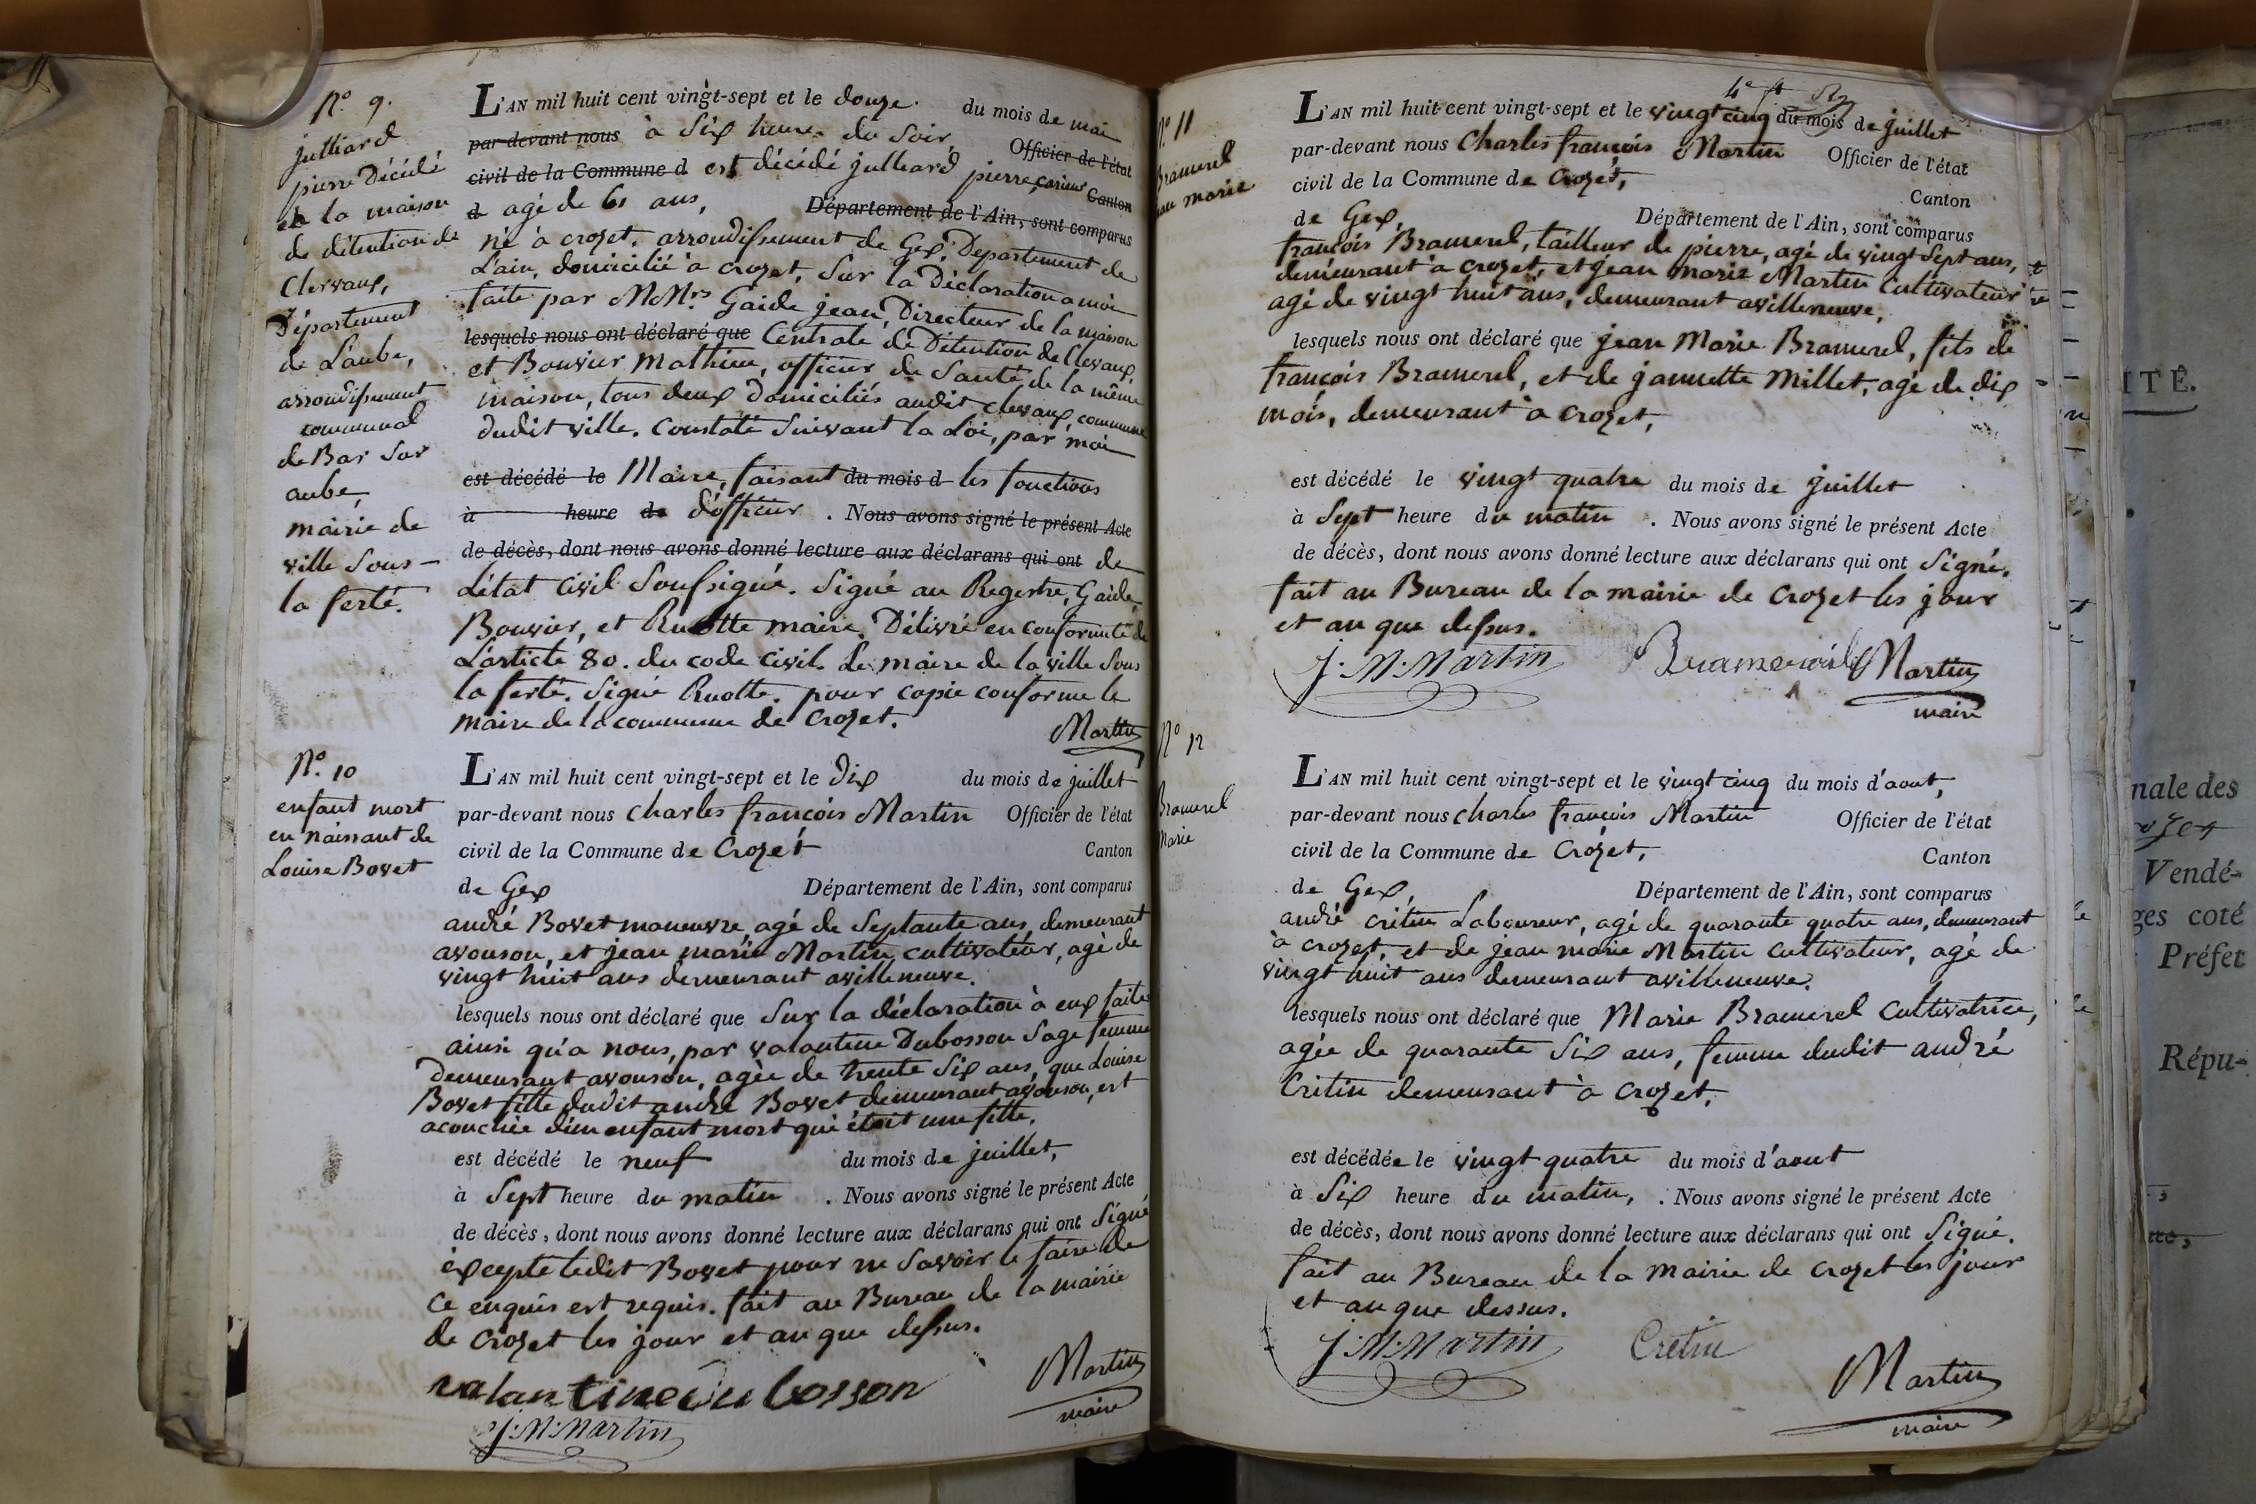 N.° 9.
julliard
pierre Décédé
à la maison
de détention de
Clervaux,
Département
de L'aube,
arrondissement
communal
de Bar Sur
aube,
mairie de
ville Sous-
la ferté.
L'AN mil huit cent vingt-sept et le douze du mois de mai
par-devant nous à Six heures du Soir, Officier de l'état
civil de la Commune d est décédé julliard pierre, carieur Canton
d agé de 61 ans, Département de l'Ain, sont comparus
né à crozet, arrondissement de Gex, Departement de
L'ain, domicilié à crozet, Sur la Déclaration a moi
faite par MMrs Gaide jean, Directeur de la maison
lesquels nous ont déclaré que Centrale de Détention de Clevaux,
et Bouvier Mathieu, officier de Santé de la même
maison, tous deux domiciliés audit clevaux, commune
dudit ville. Constaté Suivant la Loi, par moi
est décédé le Maire, faisant du mois d les fonctions
à heure de d'officier . Nous avons signé le présent Acte
de décès, dont nous avons donné lecture aux déclarans qui ont de
L'état Civil Soussigné. Signé au Registre, Gaide,
Bouvier, et Ruotte maire. Délivré en conformité de
L'article 80. du code civil. Le maire de la ville Sous
la ferté. Signé Ruotte. pour copie conforme le
maire de la commune de Crozet.
Martin
N.° 10
enfant mort
en naissant de
Louise Bovet
L'AN mil huit cent vingt-sept et le Dix du mois de juillet
par-devant nous Charles françois Martin Officier de l'état
civil de la Commune de Crozet Canton
de Gex Département de l'Ain, sont comparus
andré Bovet maneuvre, agé de Septante ans, demeurant
avouson, et jean marie Martin cultivateur, agé de
vingt huit ans demeurant avilleneuve.
lesquels nous ont déclaré que Sur la déclaration à eux faite
ainsi qu'a nous, par valantine Dubosson Sage femme
Demeurant avouson, agée de trente Six ans, que Louise
Bovet fille dudit andré Bovet demeurant avouson, est
acouchée d'un enfant mort qui étoit une fille.
est décédé le neuf du mois de juillet,
à Sept heure du matin . Nous avons signé le présent Acte
de décès, dont nous avons donné lecture aux déclarans qui ont Signé
éxcepté ledit Bovet pour ne Savoir le faire de
ce enquis est requis. fait au Bureau de la mairie
de Crozet les jour et an que dessus.
valantine Du bosson
Martin
maire
J: M: Martin
N.° 11
Bramerel
jean marie
L'AN mil huit cent vingt-sept et le vingt cinq du mois de juillet
par-devant nous Charles françois Martin Officier de l'état
civil de la Commune de Crozet, Canton
de Gex, Département de l'Ain, sont comparus
françois Bramerel, tailleur de pierre, agé de vingt Sept ans,
demeurant à crozet, et jean marie Martin Cultivateur
agé de vingt huit ans, demeurant avilleneuve,
lesquels nous ont déclaré que jean Marie Bramerel, fils de
françois Bramerel, et de jannette Millet, agé de dix
mois, demeurant à crozet,
est décédé le vingt quatre du mois de juillet
à Sept heure du matin . Nous avons signé le présent Acte
de décès, dont nous avons donné lecture aux déclarans qui ont Signé.
fait au Bureau de la mairie de Crozet les jour
et an que dessus.
J: M: Martin Martin
maire
N° 12
Bramerel
Marie
L'AN mil huit cent vingt-sept et le vingt cinq du mois d'aout,
par-devant nous charles françois Martin Officier de l'état
civil de la Commune de Crozet, Canton
de Gex, Département de l'Ain, sont comparus
andré crétin Laboureur, agé de quarante quatre ans, demeurant
à crozet, et de jean marie Martin cultivateur, agé de
vingt huit ans demeurant avilleneuve.
lesquels nous ont déclaré que Marie Bramerel Cultivatrice,
agée de quarante Six ans, femme dudit andré
Crétin demeurant à crozet,
est décédée le vingt quatre du mois d'aout
à Six heure du matin, . Nous avons signé le présent Acte
de décès, dont nous avons donné lecture aux déclarans qui ont Signé.
fait au Bureau de la mairie de crozet les jour
et an que dessus.
J: M: Martin Cretin
Martin
maire
ITÉ.
nale des
Vendé-
ges coté
Préfet
Répu-